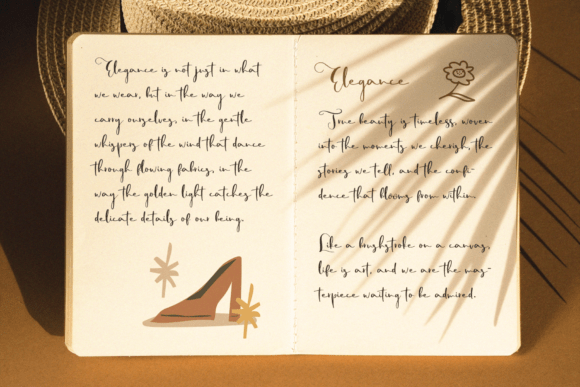 Elegance is not just in what
we wear, but in the way we
carry ourselves, in the gentle
whispers of the wind that dance
through flowing fabrics, in the
way the golden light catches the
delicate details of our being.
Elegance
True beauty is timeless, woven
into the moments we cherish, the
stories we tell, and the confi-
dence that blooms from within.
Like a brushstroke on a canvas,
life is art, and we are the mas-
terpiece waiting to be admired.